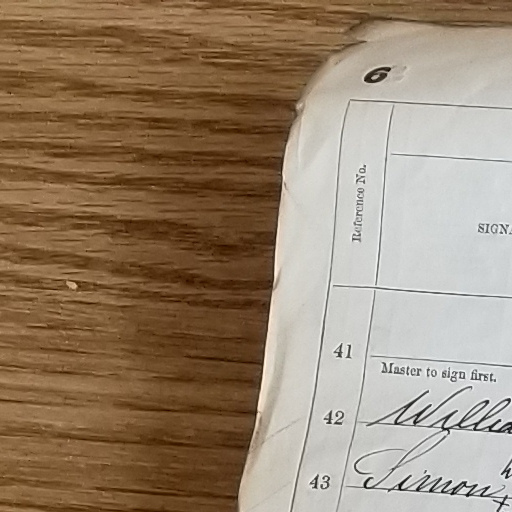 6
Reference No.
SIGNA
41
Master to sign first.
42 Willia
43 Simon